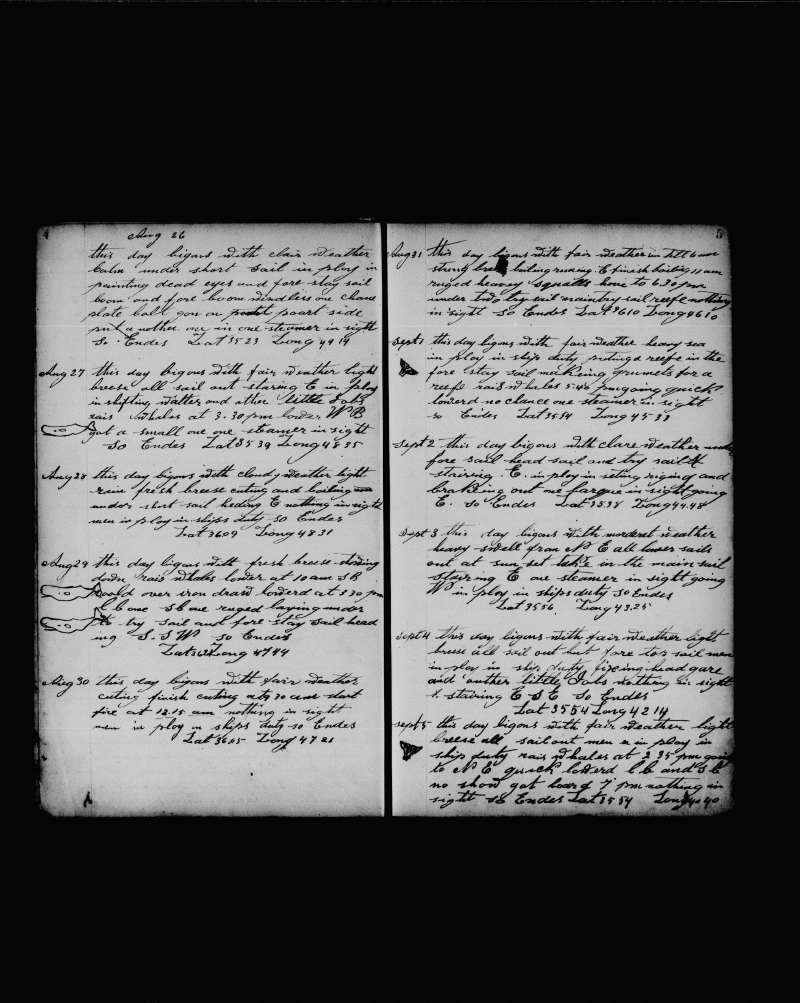 4
Aug 26
this day bigons with clair weather
Calm under short sail in ploy in
painting dead eyes and fore stay sail
boom and fore boom windless one chane
plate bolt gon on poart side
put a nother one in one steamer in sight
So Endes Lat 35 23 Long 49 14
Aug 27 this day bigons with fair weather light
breese all sail out staring E in ploy
in shifting watter and other little Jobs
rais whales at 3.30 pm lower W B
got a small one one steamer in sight
So Endes Lat 35 39 Long 48 35
Aug 28 this day bigons with cloudy weather light
rain fresh breese cuting and boiling
under short sail heding E nothing in sight
men in ploy in ships duty so Endes
Lat 3609 Long 4831
Aug 29 this day bigons with fresh breese
down rais whales lower at 10 am S B
over iron draw lowerd at 3 30 pm
L B one S B one ruged laying under
try sail and fore stay sail head
ing S.S W so Endes
Long 4744
Aug 30 this day bigons with fair weather
cuting finish cuting at 9,30 am start
fire at 12.15 am nothing in sight
men in ploy in ships duty so Endes
Lat 36.05 Long 47 21
5
Aug 31 this day bigons with fair weather un till 6 am
strong breese boiling runing E finish boiling 11 am
ruged heavey squalls hove to 6.30 pm
under two try sail main try sail reefe nothing
in sight so Endes Lat 3610 Long 4610
Sept 1 this day bigons with fair weather heavy sea
in ploy in ships duty puting a reefe in the
fore stay sail meeking grumets for a
reefe rais whales 5.40 pm going quick
lowerd no chance one steamer in sight
so Endes Lat 3554 Long 45 33
Sept 2 this day bigons with clare weather under
fore sail head sail and try sail
stairing E. in ploy in seting riging and
braking out one barque in sight going
E. so Endes Lat 35.38 Long 44.48
Sept 3 this day bigons with morderet weather
heavy swell from N E all lower sails
out at sun set take in the main sail
stairing E one steamer in sight going
W in ploy in ships duty so Endes
Lat 3556 Long 43.25
Sept 4 this day bigons with fair weather light
breese all sail out but fore tor sail men
in ploy in ship duty fixeing head gare
and another little Jobs nothing in sight
stairing E S E So Endes
Lat 3554 Long 42 14
Sept 5 this day bigons with fair weather light
breese all sail out men in ploy in
ship duty rais whales at 2 35 pm going
to N E quick lowerd L B and S B
no show got board 7 pm nothing in
sight so Endes Lat 35 54 Long 40 40